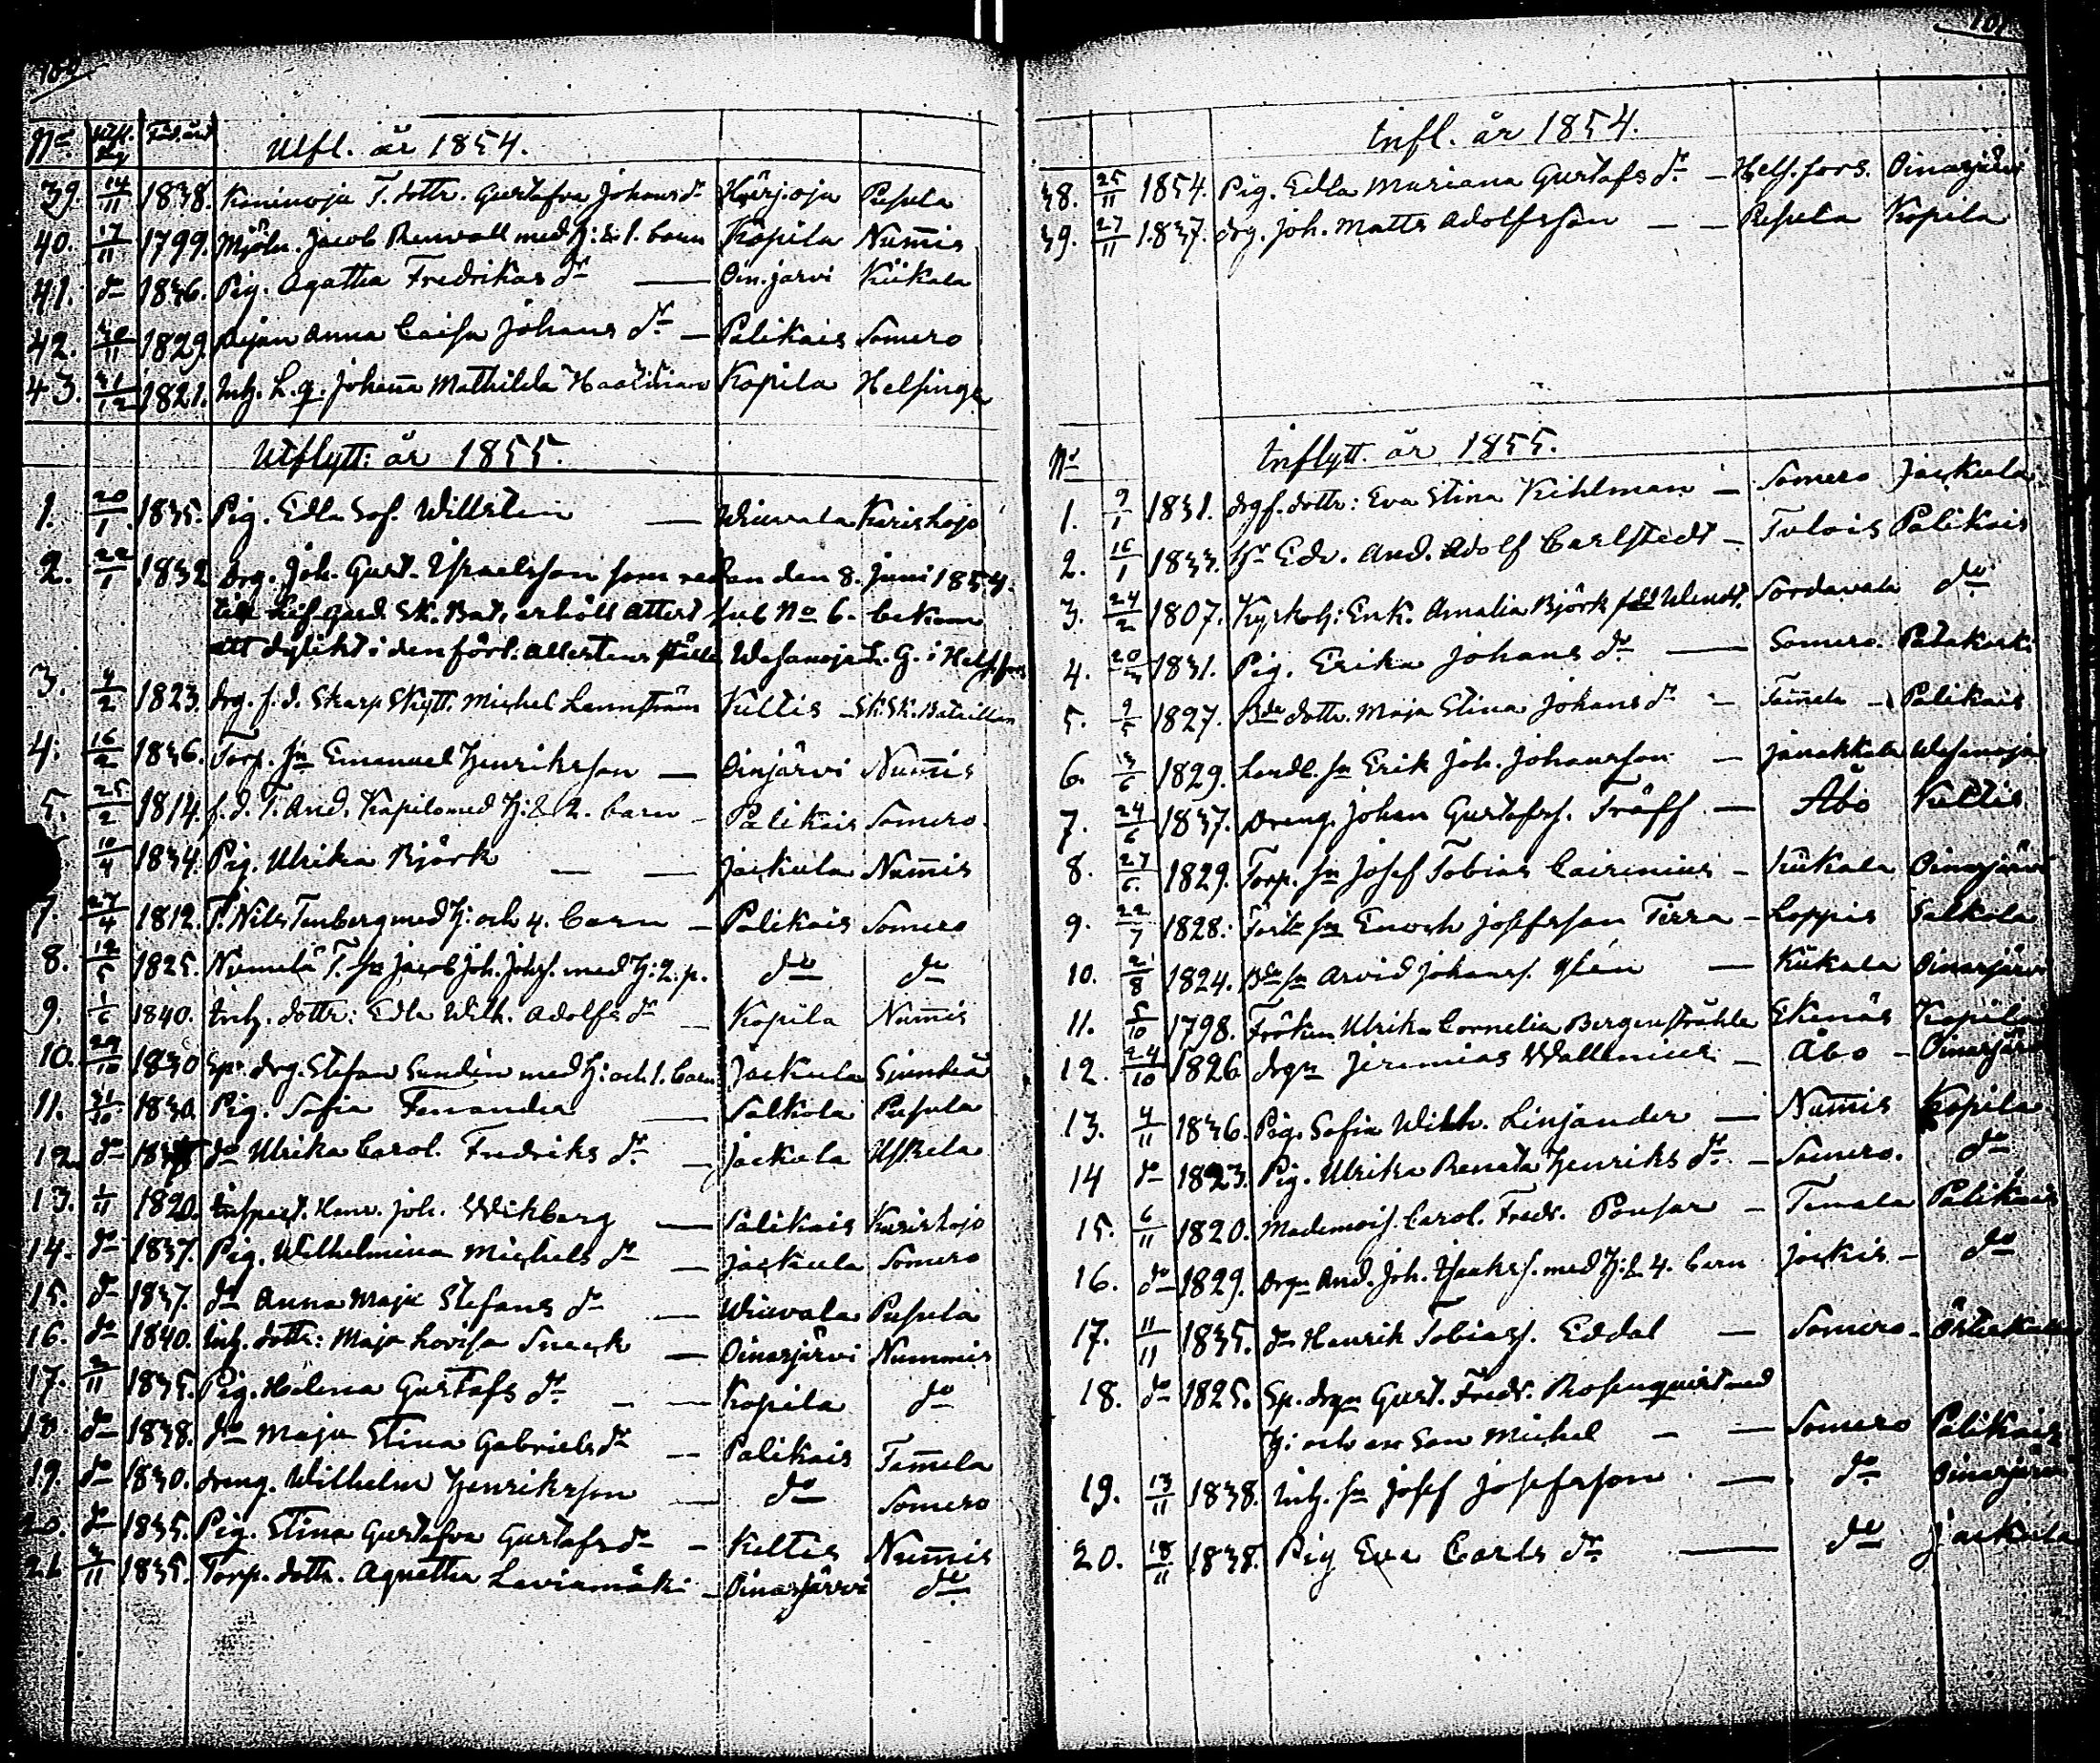 No Utfl. år 1854.
39. 14/11 1838. T. dottr. Gustafva Johans dr Härjoja Pusula
40. 17/11 1799. Mjöln. Jacob Renvall med H: & 1. barn Kopila Num̄is
41. do 1836. Pig. Agatha Fredrikas dr — Oin.järvi Kiikala
42. 30/11 1829. Pijan Anna Caisa Johans dr — Palikais Somero
43. 31/12 1821. Inh. Joha͞na Mathilda Kopila Helsinge
Utflytt: år 1855.
1. 20/1 1835. Pig. Edla Sof. Willstein — Wiuvala Karislojo
2. 22/1 1832 Drg. Joh. Gust. Israelsson som redan den 8. Juni 1854.
till Lif Gard. Sk. Bat. erhöll attest sub No 6. bekom
ett dylikt i den förl. attestens ställe Wahanoja L. G. i Hels.fors
3. 4/2 1823. Drg. f. d. Skarp Skytt. Michel Lennström Kultis Sk. Sk. Bataillon
4. 16/2 1836. Torp. sn Emanuel Henriksson — Oinjärvi Num̄is
5. 25/2 1814. f. d. T. And. Kopilo med H: & 2. barn — Palikais Somero.
10/4 1834. Pig. Ulrika Björk — — Jackula Num̄is
7. 27/4 1812. T. Nils Tenberg med H: och 4. barn — Palikais Somero
8. 12/5 1825. Numela T. sn Jacob Joh. Johss. med H: 2. p. do do
9. 1/6 1840. Inh. dottr: Edla Wilh. Adolfs dr — Kopila Num̄is
10. 29/10 1830 Spr. drg. Stefan Sundin med H: och 1. barn Jackula Sjundeå
11. 31/10 1830. Pig. Sofia Fenander — Salkola Pusula
12. do do Ulrika Carol. Fredriks dr — Jackula Uskela
13. 1/11 1820. Inspect. Henr. Joh. Wikberg — Palikais Karislojo
14. do 1837. Pig. Wilhelmina Michels dr — Jackula Somero
15. do 1837. do Anna Maja Stefans dr — Wiuvala Pusula
16. do 1840. Inh. dottr: Maja Lovisa Sneck — Oinasjärvi Nummis
17. 2/11 1835. Pig. Helena Gustafs dr — — Kopila do
18. do 1838. do Maja Stina Gabriels dr — Palikais Tam̄ela
19. do 1830. Dreng. Wilhelm Henriksson — do Somero
20. do 1835. Pig. Stina Gustafva Gustafs dr — Kultis Num̄is
21. 1835. Torp. dottr. Agnetha Laviamäki — Oinasjärvi do
Infl. år 1854.
38. 25/11 1854. Pig. Edla Mariana Gustafs dr — Hels.fors. Oinasjärvi
39. 27/11 1837. Drg. Joh. Matts Adolfsson — — Pusula Kopila
No Inflytt. år 1855.
1. 9/1 1831. Drgs. dottr: Eva Stina Kihlman — Somero Jackula
2. 16/1 1833. Hr Edv. And. Adolf Carlstedt — Tulois Palikais
3. 24/2 1807. Kyrkoh: Enk. Amalia Björk född Wendt. Sordavala do
4. 1831. Pig. Erika Johans dr — Somero. Patakoski
5. 9/5 1827. Bde dottr. Maja Stina Johans dr — Tam̄ela — Palikais
6. 13/6 1829. Landb. sn Erik Joh. Johansson — Janakkala Wahanoja
7. 24/6 1837. Dreng. Johan Gustafss. Träff — Åbo Kultis
8. 27/6 1829. Torp. sn Josef Tobias Cairenius — Kiikala Oinasjärvi
9. 22/7 1828. sn Enoch Josefsson Terra — Loppis Salkola
10. 21/8 1824. Bde sn Arvid Johanss. — Kiikala Oinasjärvi
11. 5/10 1798. Fröken Ulrika Cornelia Bergenstråhle Ekenäs Kopila
12. 24/10 1826 Drgn Jeremias Wallenius — Åbo — Oinasjärvi
13. 4/11 1836. Pig. Sofia Wilh. Linjander — Num̄is Kopila
14 do 1823. Pig. Ulrika Renata Henriks dr — Somero. do
15. 6/11 1820. Mademois. Carol. Fredr. Ponsar — Tenala Palikais
16. do 1829. Drgn And. Joh. Isaakss. med H: & 4. barn Jockis — do
17. 11/11 1835. do Henrik Tobiass. Eddal — Somero —
18. do 1825. Sp. drgn Gust. Fredr. Rosenqvist med
H: och en Son Michel — — Somero Palikais
19. 13/11 1838. Inh. sn Josef Josefsson — do Oinasjärvi
20. 18/11 1838. Pig Eva Carls dr — do Jackula